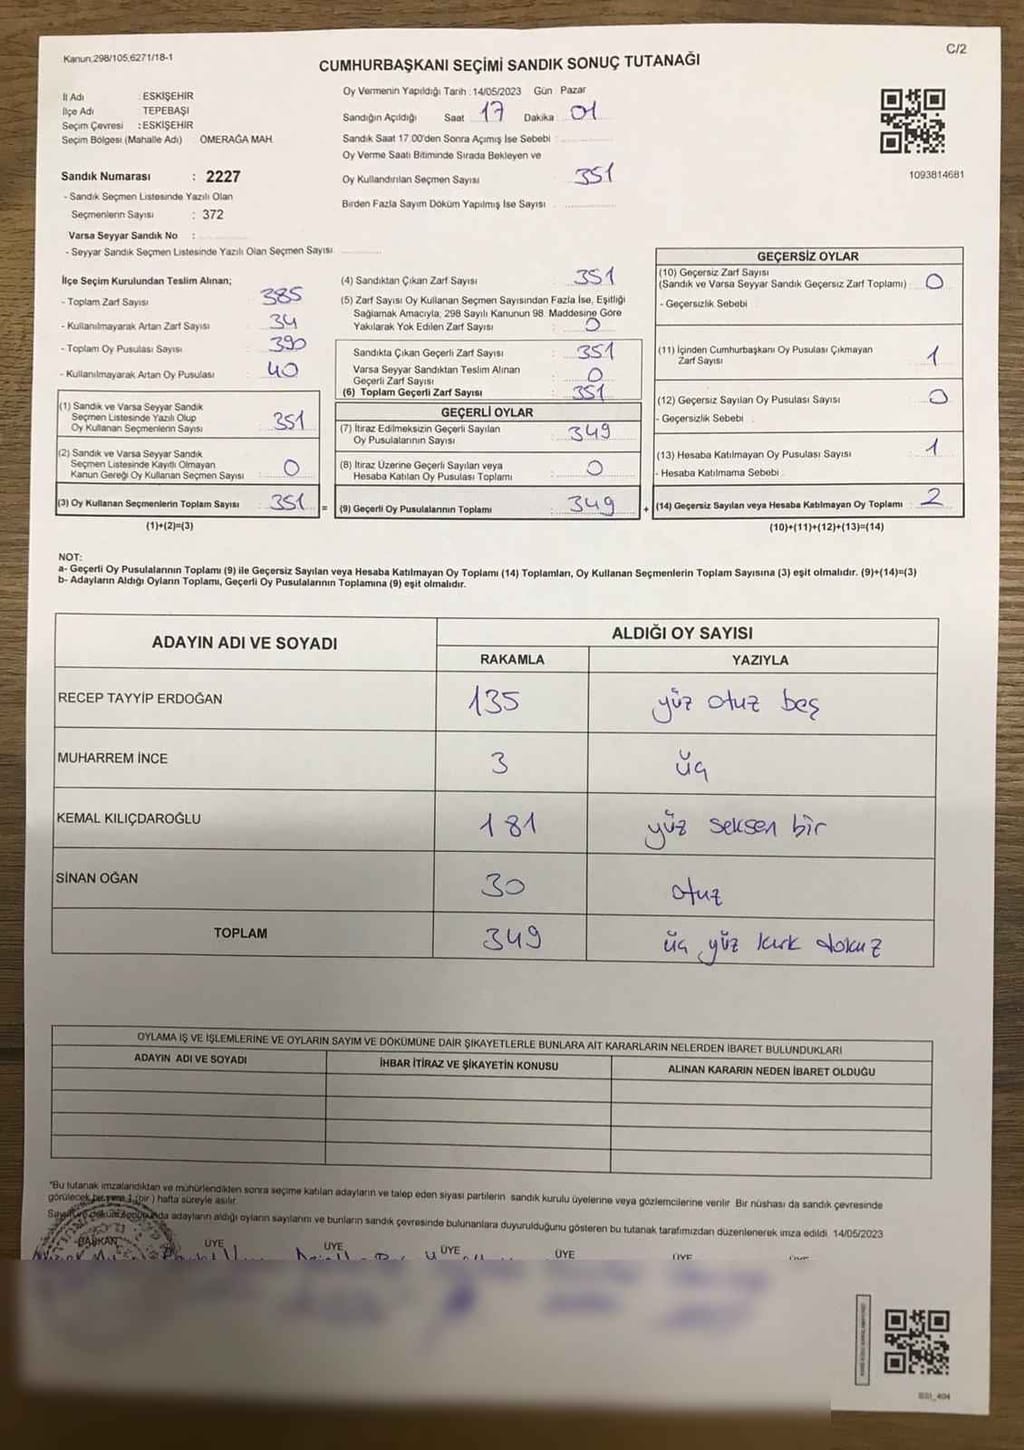 Kanun:298/105,6271/18-1
C/2
CUMHURBAŞKANI SEÇİMİ SANDIK SONUÇ TUTANAĞI
İl Adı : ESKİŞEHİR
İlçe Adı TEPEBAŞI
Seçim Çevresi : ESKİŞEHİR
Seçim Bölgesi (Mahalle Adı) ÖMERAĞA MAH.
Sandık Numarası : 2227
- Sandık Seçmen Listesinde Yazılı Olan
Seçmenlerin Sayısı : 372
Varsa Seyyar Sandık No :
- Seyyar Sandık Seçmen Listesinde Yazılı Olan Seçmen Sayısı
Oy Vermenin Yapıldığı Tarih : 14/05/2023 Gün : Pazar
Sandığın Açıldığı Saat 17 Dakika 01
Sandık Saat 17:00'den Sonra Açımış İse Sebebi
Oy Verme Saati Bitiminde Sırada Bekleyen ve
Oy Kullandırılan Seçmen Sayısı 351
Birden Fazla Sayım Döküm Yapılmış İse Sayısı
1093814681
İlçe Seçim Kurulundan Teslim Alınan;
- Toplam Zarf Sayısı 385
- Kullanılmayarak Artan Zarf Sayısı 34
- Toplam Oy Pusulası Sayısı 390
- Kullanılmayarak Artan Oy Pusulası 40
(1) Sandık ve Varsa Seyyar Sandık
Seçmen Listesinde Yazılı Olup
Oy Kullanan Seçmenlerin Sayısı 351
(2) Sandık ve Varsa Seyyar Sandık
Seçmen Listesinde Kayıtlı Olmayan
Kanun Gereği Oy Kullanan Seçmen Sayısı 0
(3) Oy Kullanan Seçmenlerin Toplam Sayısı 351 =
(1)+(2)=(3)
(4) Sandıktan Çıkan Zarf Sayısı 351
(5) Zarf Sayısı Oy Kullanan Seçmen Sayısından Fazla İse, Eşitliği
Sağlamak Amacıyla, 298 Sayılı Kanunun 98. Maddesine Göre
Yakılarak Yok Edilen Zarf Sayısı : 0
Sandıkta Çıkan Geçerli Zarf Sayısı : 351
Varsa Seyyar Sandıktan Teslim Alınan
Geçerli Zarf Sayısı : 0
(6) Toplam Geçerli Zarf Sayısı : 351
GEÇERLİ OYLAR
(7) İtiraz Edilmeksizin Geçerli Sayılan
Oy Pusulalarının Sayısı 349
(8) İtiraz Üzerine Geçerli Sayılan veya
Hesaba Katılan Oy Pusulası Toplamı 0
(9) Geçerli Oy Pusulalarının Toplamı 349 +
GEÇERSİZ OYLAR
(10) Geçersiz Zarf Sayısı
(Sandık ve Varsa Seyyar Sandık Geçersiz Zarf Toplamı) 0
- Geçersizlik Sebebi
(11) İçinden Cumhurbaşkanı Oy Pusulası Çıkmayan
Zarf Sayısı 1
(12) Geçersiz Sayılan Oy Pusulası Sayısı 0
- Geçersizlik Sebebi
(13) Hesaba Katılmayan Oy Pusulası Sayısı 1
- Hesaba Katılmama Sebebi
(14) Geçersiz Sayılan veya Hesaba Katılmayan Oy Toplamı 2
(10)+(11)+(12)+(13)=(14)
NOT:
a- Geçerli Oy Pusulalarının Toplamı (9) ile Geçersiz Sayılan veya Hesaba Katılmayan Oy Toplamı (14) Toplamları, Oy Kullanan Seçmenlerin Toplam Sayısına (3) eşit olmalıdır. (9)+(14)=(3)
b- Adayların Aldığı Oyların Toplamı, Geçerli Oy Pusulalarının Toplamına (9) eşit olmalıdır.
ADAYIN ADI VE SOYADI ALDIĞI OY SAYISI
RAKAMLA YAZIYLA
RECEP TAYYİP ERDOĞAN 135 yüz otuz beş
MUHARREM İNCE 3 üç
KEMAL KILIÇDAROĞLU 181 yüz seksen bir
SİNAN OĞAN 30 otuz
TOPLAM 349 üç yüz kırk dokuz
OYLAMA İŞ VE İŞLEMLERİNE VE OYLARIN SAYIM VE DÖKÜMÜNE DAİR ŞİKAYETLERLE BUNLARA AİT KARARLARIN NELERDEN İBARET BULUNDUKLARI
ADAYIN ADI VE SOYADI İHBAR İTİRAZ VE ŞİKAYETİN KONUSU ALINAN KARARIN NEDEN İBARET OLDUĞU
"Bu tutanak imzalandıktan ve mühürlendikten sonra seçime katılan adayların ve talep eden siyasi partilerin sandık kurulu üyelerine veya gözlemcilerine verilir. Bir nüshası da sandık çevresinde
görülecek bir yere 1 (bir ) hafta süreyle asılır.
adayların aldığı oyların sayılarını ve bunların sandık çevresinde bulunanlara duyurulduğunu gösteren bu tutanak tarafımızdan düzenlenerek imza edildi. 14/05/2023
BAŞKAN ÜYE ÜYE ÜYE ÜYE ÜYE